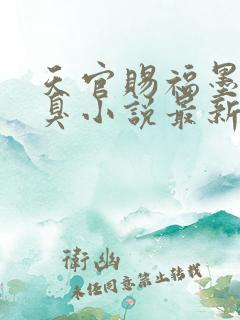 天官赐福墨
真小说最新
衛幽
未任同意禁止转载